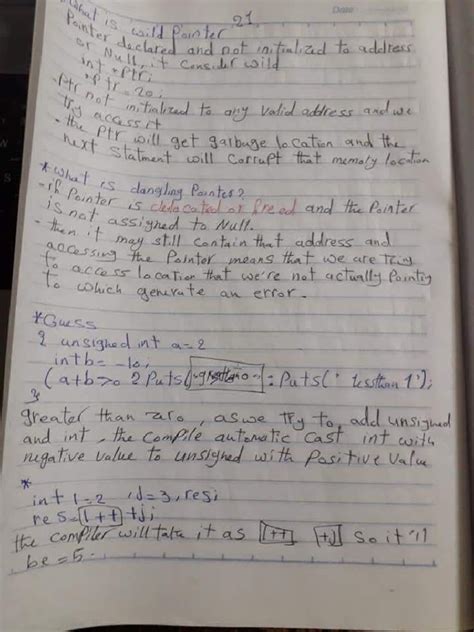 21
Date
*What is wild Pointer
Pointer declared and not initialized to address
or Null, it consider wild
int *Ptr;
*Ptr = 20;
-Ptr not initialized to any valid address and we
try access it
- the Ptr will get garbuge location and the
next statment will corrupt that memoly location
*What is dangling Pointer?
-if Pointer is delocated or freed and the Pointer
is not assigned to Null.
- then it may still contain that address and
accessing the Pointer means that we are trig
to access location that we're not actually Pointig
to which generate an error.
*Guess
{ unsigned int a=2
int b = -10;
(a+b>0 ? Puts( greatthan0 : Puts(" lessthan 1");
}
greater than zaro, as we try to add unsigned
and int, the compile automatic cast int with
negative value to unsigned with Positive value
*
int i=2 , j=3, res;
res = i++ +j;
the compiler will take it as i++ +j So it'll
be = 5.